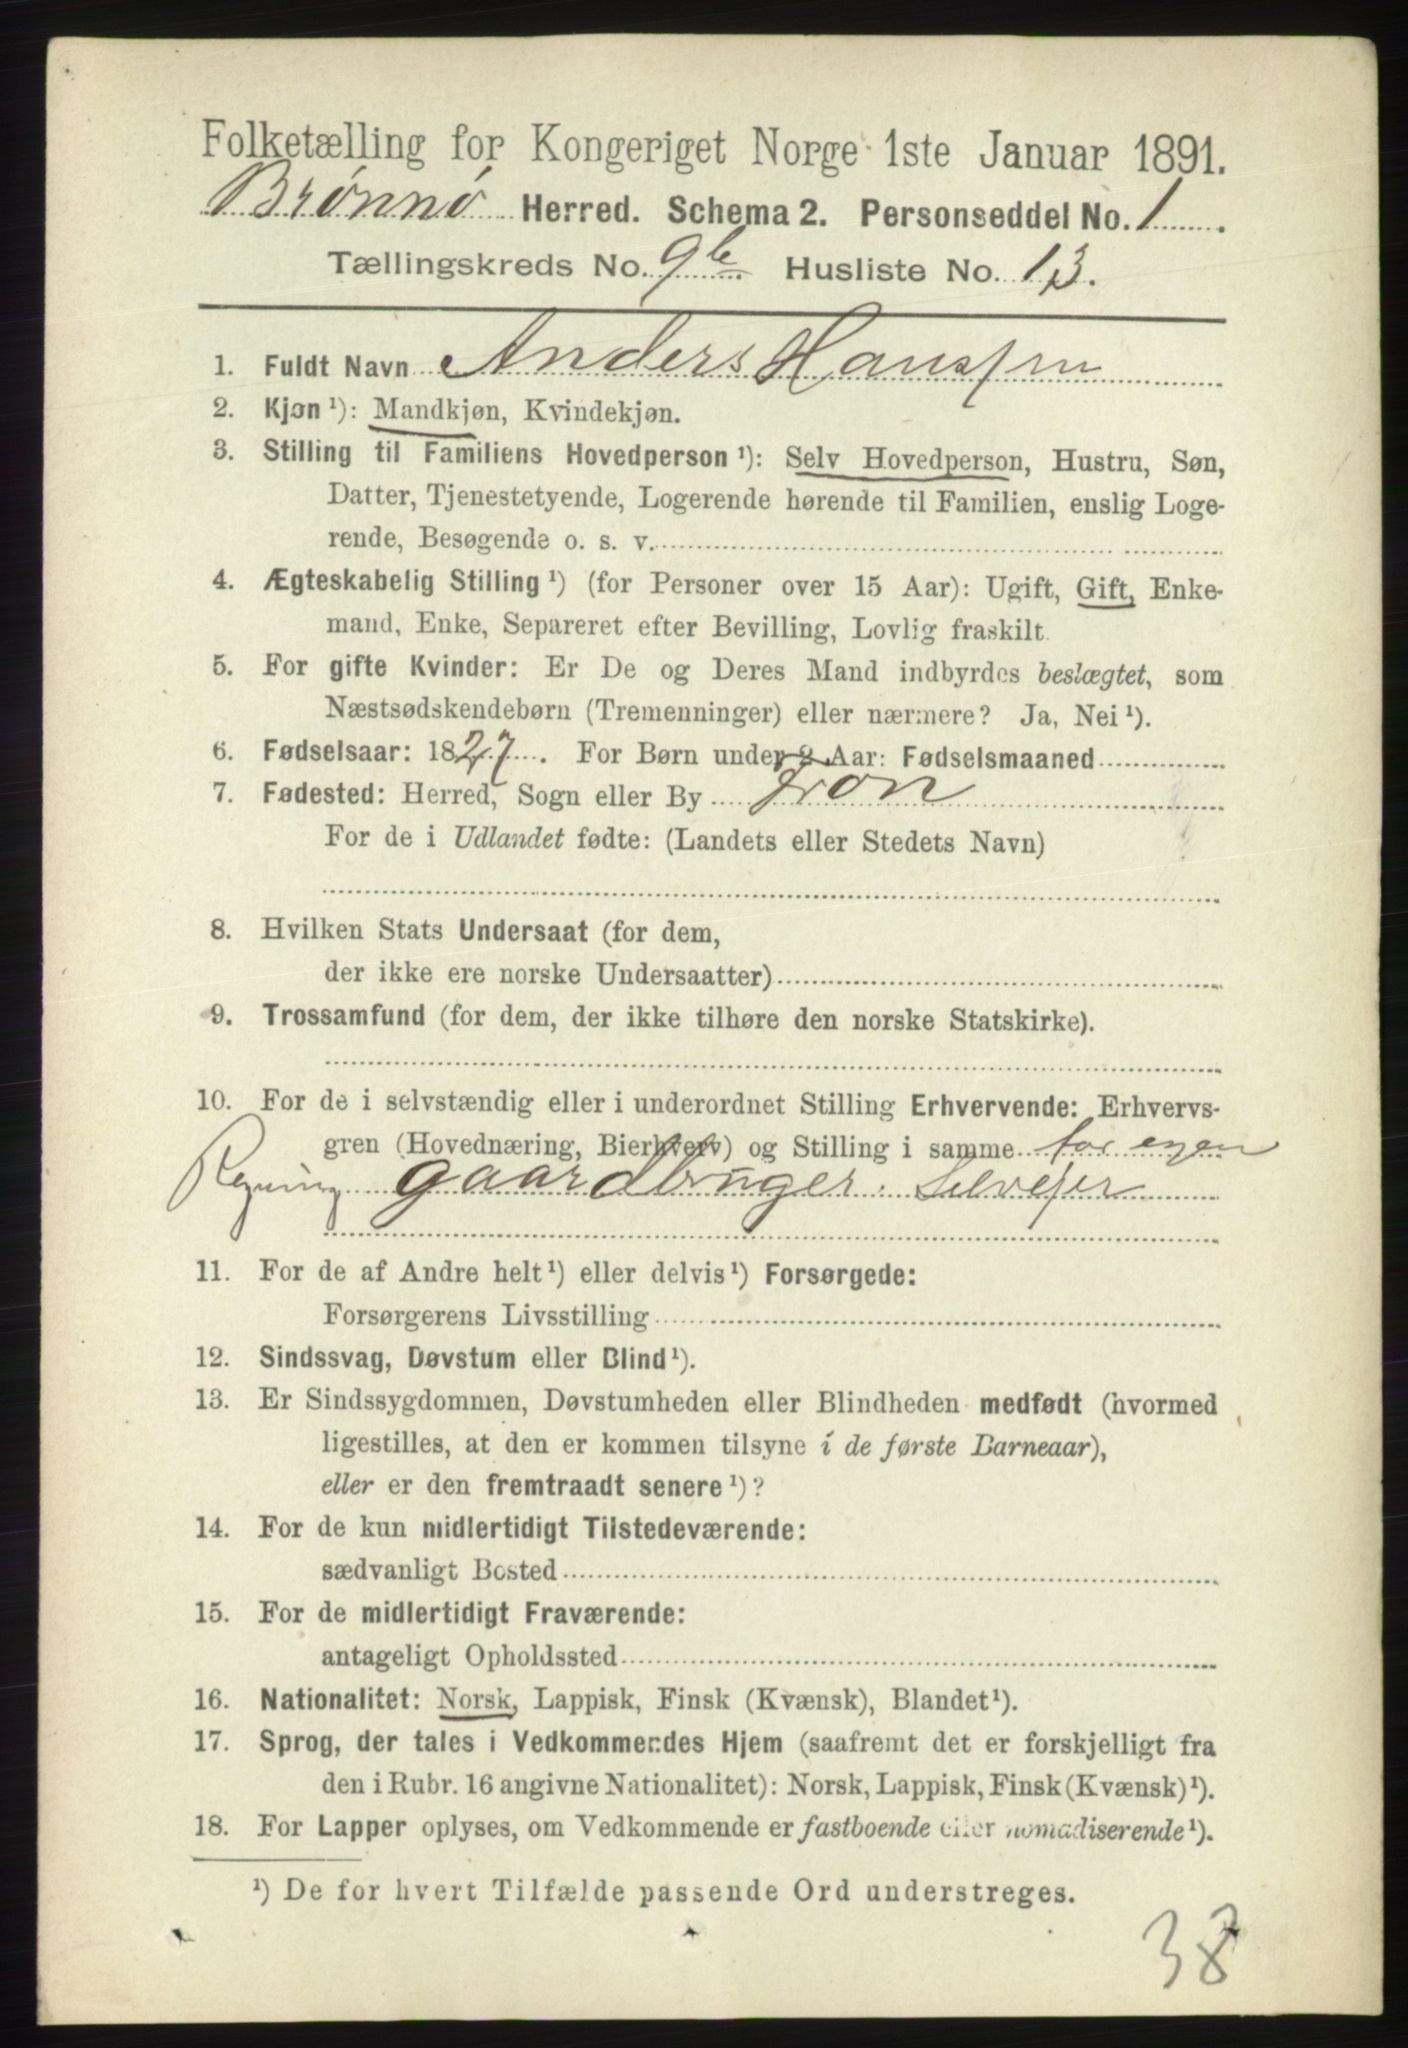 Folketælling for Kongeriget Norge 1ste Januar 1891.
Brønnø Herred. Schema 2. Personseddel No. 1.
Tællingskreds No. 9b. Husliste No. 13.
1. Fuldt Navn Anders Hanssen
2. Kjøn ¹): Mandkjøn, Kvindekjøn.
3. Stilling til Familiens Hovedperson ¹): Selv Hovedperson, Hustru, Søn,
Datter, Tjenestetyende, Logerende hørende til Familien, enslig Loge-
rende, Besøgende o. s. v.
4. Ægteskabelig Stilling ¹) (for Personer over 15 Aar): Ugift, Gift, Enke-
mand, Enke, Separeret efter Bevilling, Lovlig fraskilt
5. For gifte Kvinder: Er De og Deres Mand indbyrdes beslægtet, som
Næstsødskendebørn (Tremenninger) eller nærmere? Ja, Nei ¹).
6. Fødselsaar: 1827. For Børn under 2 Aar: Fødselsmaaned
7. Fødested: Herred, Sogn eller By Tron
For de i Udlandet fødte: (Landets eller Stedets Navn)
8. Hvilken Stats Undersaat (for dem,
der ikke ere norske Undersaatter)
9. Trossamfund (for dem, der ikke tilhøre den norske Statskirke).
10. For de i selvstændig eller i underordnet Stilling Erhvervende: Erhvervs-
gren (Hovednæring, Bierhverv) og Stilling i samme for egen
Regning gaardbruger. Selvejer
11. For de af Andre helt ¹) eller delvis ¹) Forsørgede:
Forsørgerens Livsstilling
12. Sindssvag, Døvstum eller Blind ¹).
13. Er Sindssygdommen, Døvstumheden eller Blindheden medfødt (hvormed
ligestilles, at den er kommen tilsyne i de første Barneaar),
eller er den fremtraadt senere ¹)?
14. For de kun midlertidigt Tilstedeværende:
sædvanligt Bosted
15. For de midlertidigt Fraværende:
antageligt Opholdssted
16. Nationalitet: Norsk, Lappisk, Finsk (Kvænsk), Blandet ¹).
17. Sprog, der tales i Vedkommendes Hjem (saafremt det er forskjelligt fra
den i Rubr. 16 angivne Nationalitet): Norsk, Lappisk, Finsk (Kvænsk) ¹).
18. For Lapper oplyses, om Vedkommende er fastboende eller nomadiserende ¹).
¹) De for hvert Tilfælde passende Ord understreges.
38